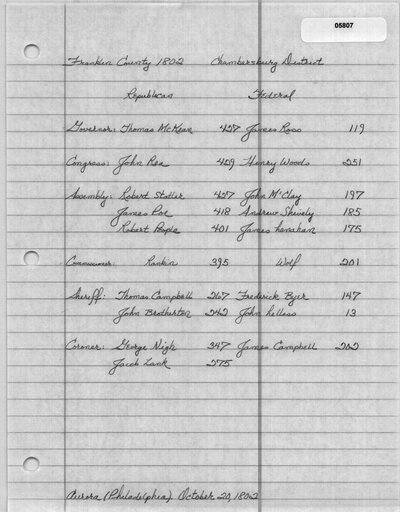 05807
Franklin County 1802 Chambersburg District
Republican Federal
Governor: Thomas McKean 427 James Ross 119
Congress: John Rea 409 Henry Woods 251
Assembly: Robert Statler 427 John McClay 197
James Poe 418 Andrew Shively 185
Robert Peeple 401 James 175
Commissioner: Rankin 395 Wolf 201
Sheriff: Thomas Campbell 267 Frederick Byer 147
John Brotherton 242 John 13
Coroner: George Nigh 347 James Campbell 202
Jacob Lank 275
Aurora (Philadelphia). October 20, 1802